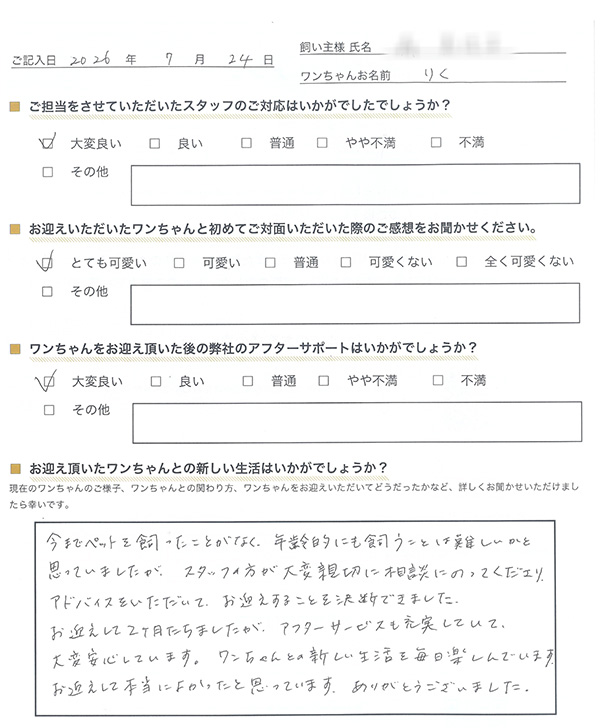 ご記入日 2026 年 7 月 24 日
飼い主様 氏名
ワンちゃんお名前 りく
■ ご担当をさせていただいたスタッフのご対応はいかがでしたでしょうか？
☑ 大変良い □ 良い □ 普通 □ やや不満 □ 不満
□ その他
■ お迎えいただいたワンちゃんと初めてご対面いただいた際のご感想をお聞かせください。
☑ とても可愛い □ 可愛い □ 普通 □ 可愛くない □ 全く可愛くない
□ その他
■ ワンちゃんをお迎え頂いた後の弊社のアフターサポートはいかがでしょうか？
☑ 大変良い □ 良い □ 普通 □ やや不満 □ 不満
□ その他
■ お迎え頂いたワンちゃんとの新しい生活はいかがでしょうか？
現在のワンちゃんのご様子、ワンちゃんとの関わり方、ワンちゃんをお迎えいただいてどうだったかなど、詳しくお聞かせいただけまし
たら幸いです。
今までペットを飼ったことがなく、年齢的にも飼うことは難しいかと
思っていましたが、スタッフの方が大変親切に相談にのってくださり、
アドバイスをいただいて、お迎えすることを決断できました。
お迎えして2ヶ月たちましたが、アフターサービスも充実していて、
大変安心しています。ワンちゃんとの新しい生活を毎日楽しんでいます。
お迎えして本当によかったと思っています。ありがとうございました。